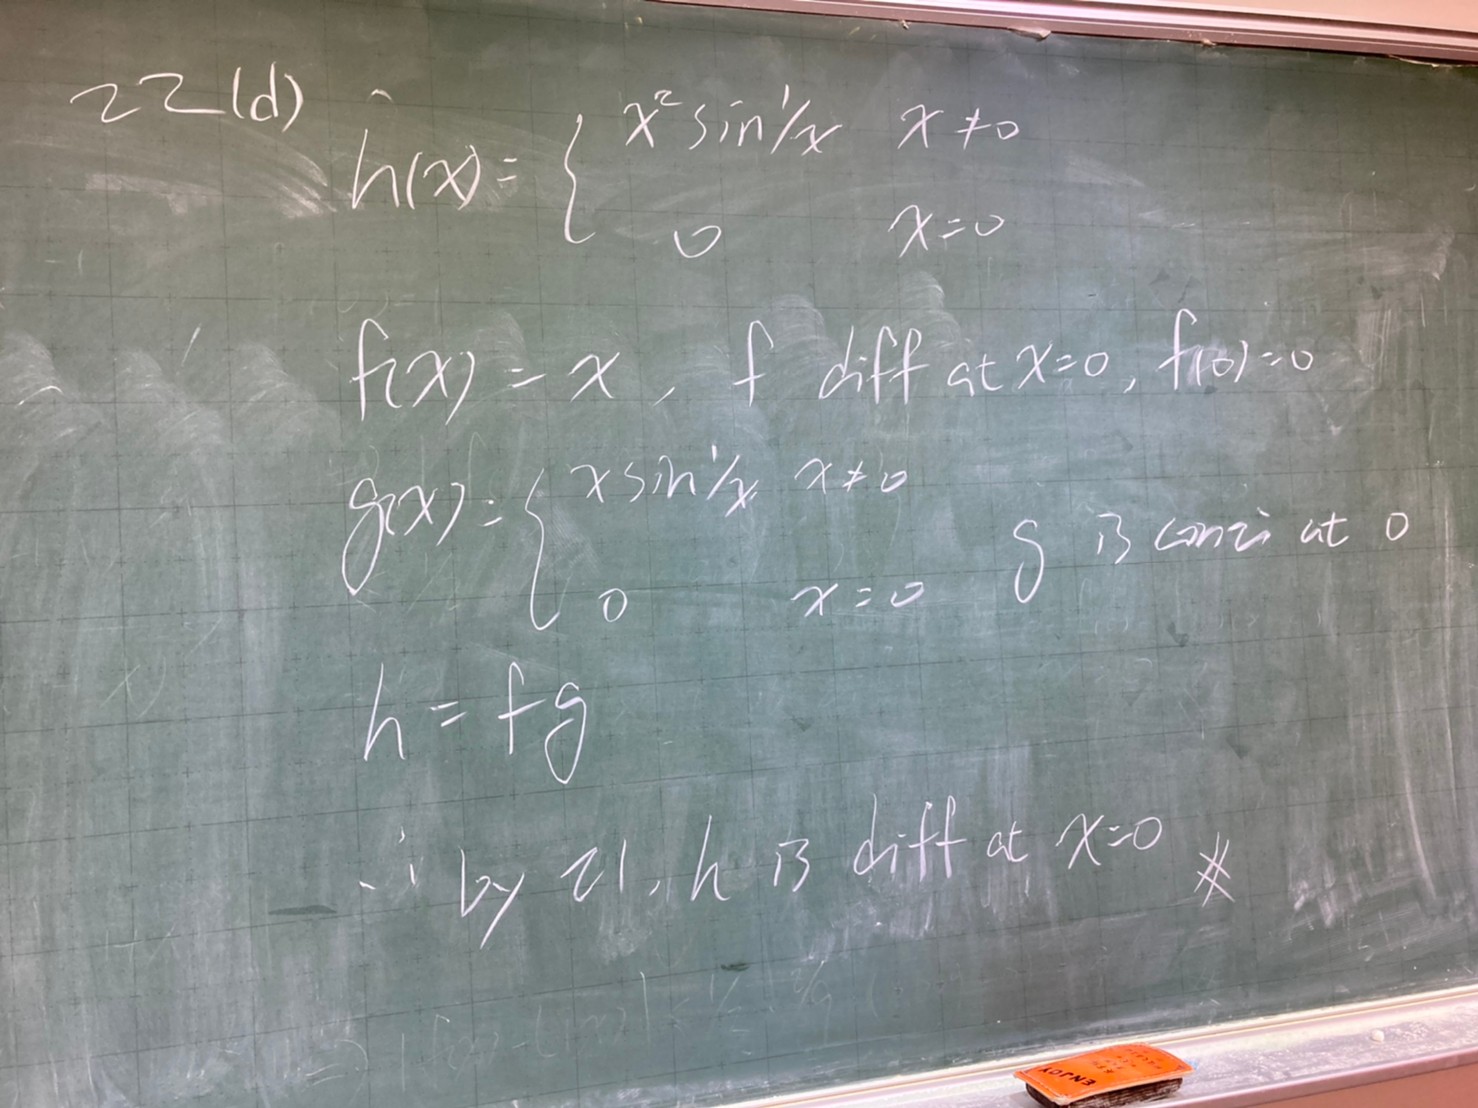 22(d)
h(x) = { x² sin 1/x x ≠ 0
0 x = 0
f(x) = x , f diff at x=0, f(0)=0
g(x) = { x sin 1/x x ≠ 0
0 x = 0 g is conti at 0
h = fg
∴ by 21, h is diff at x=0 #
ENJOY